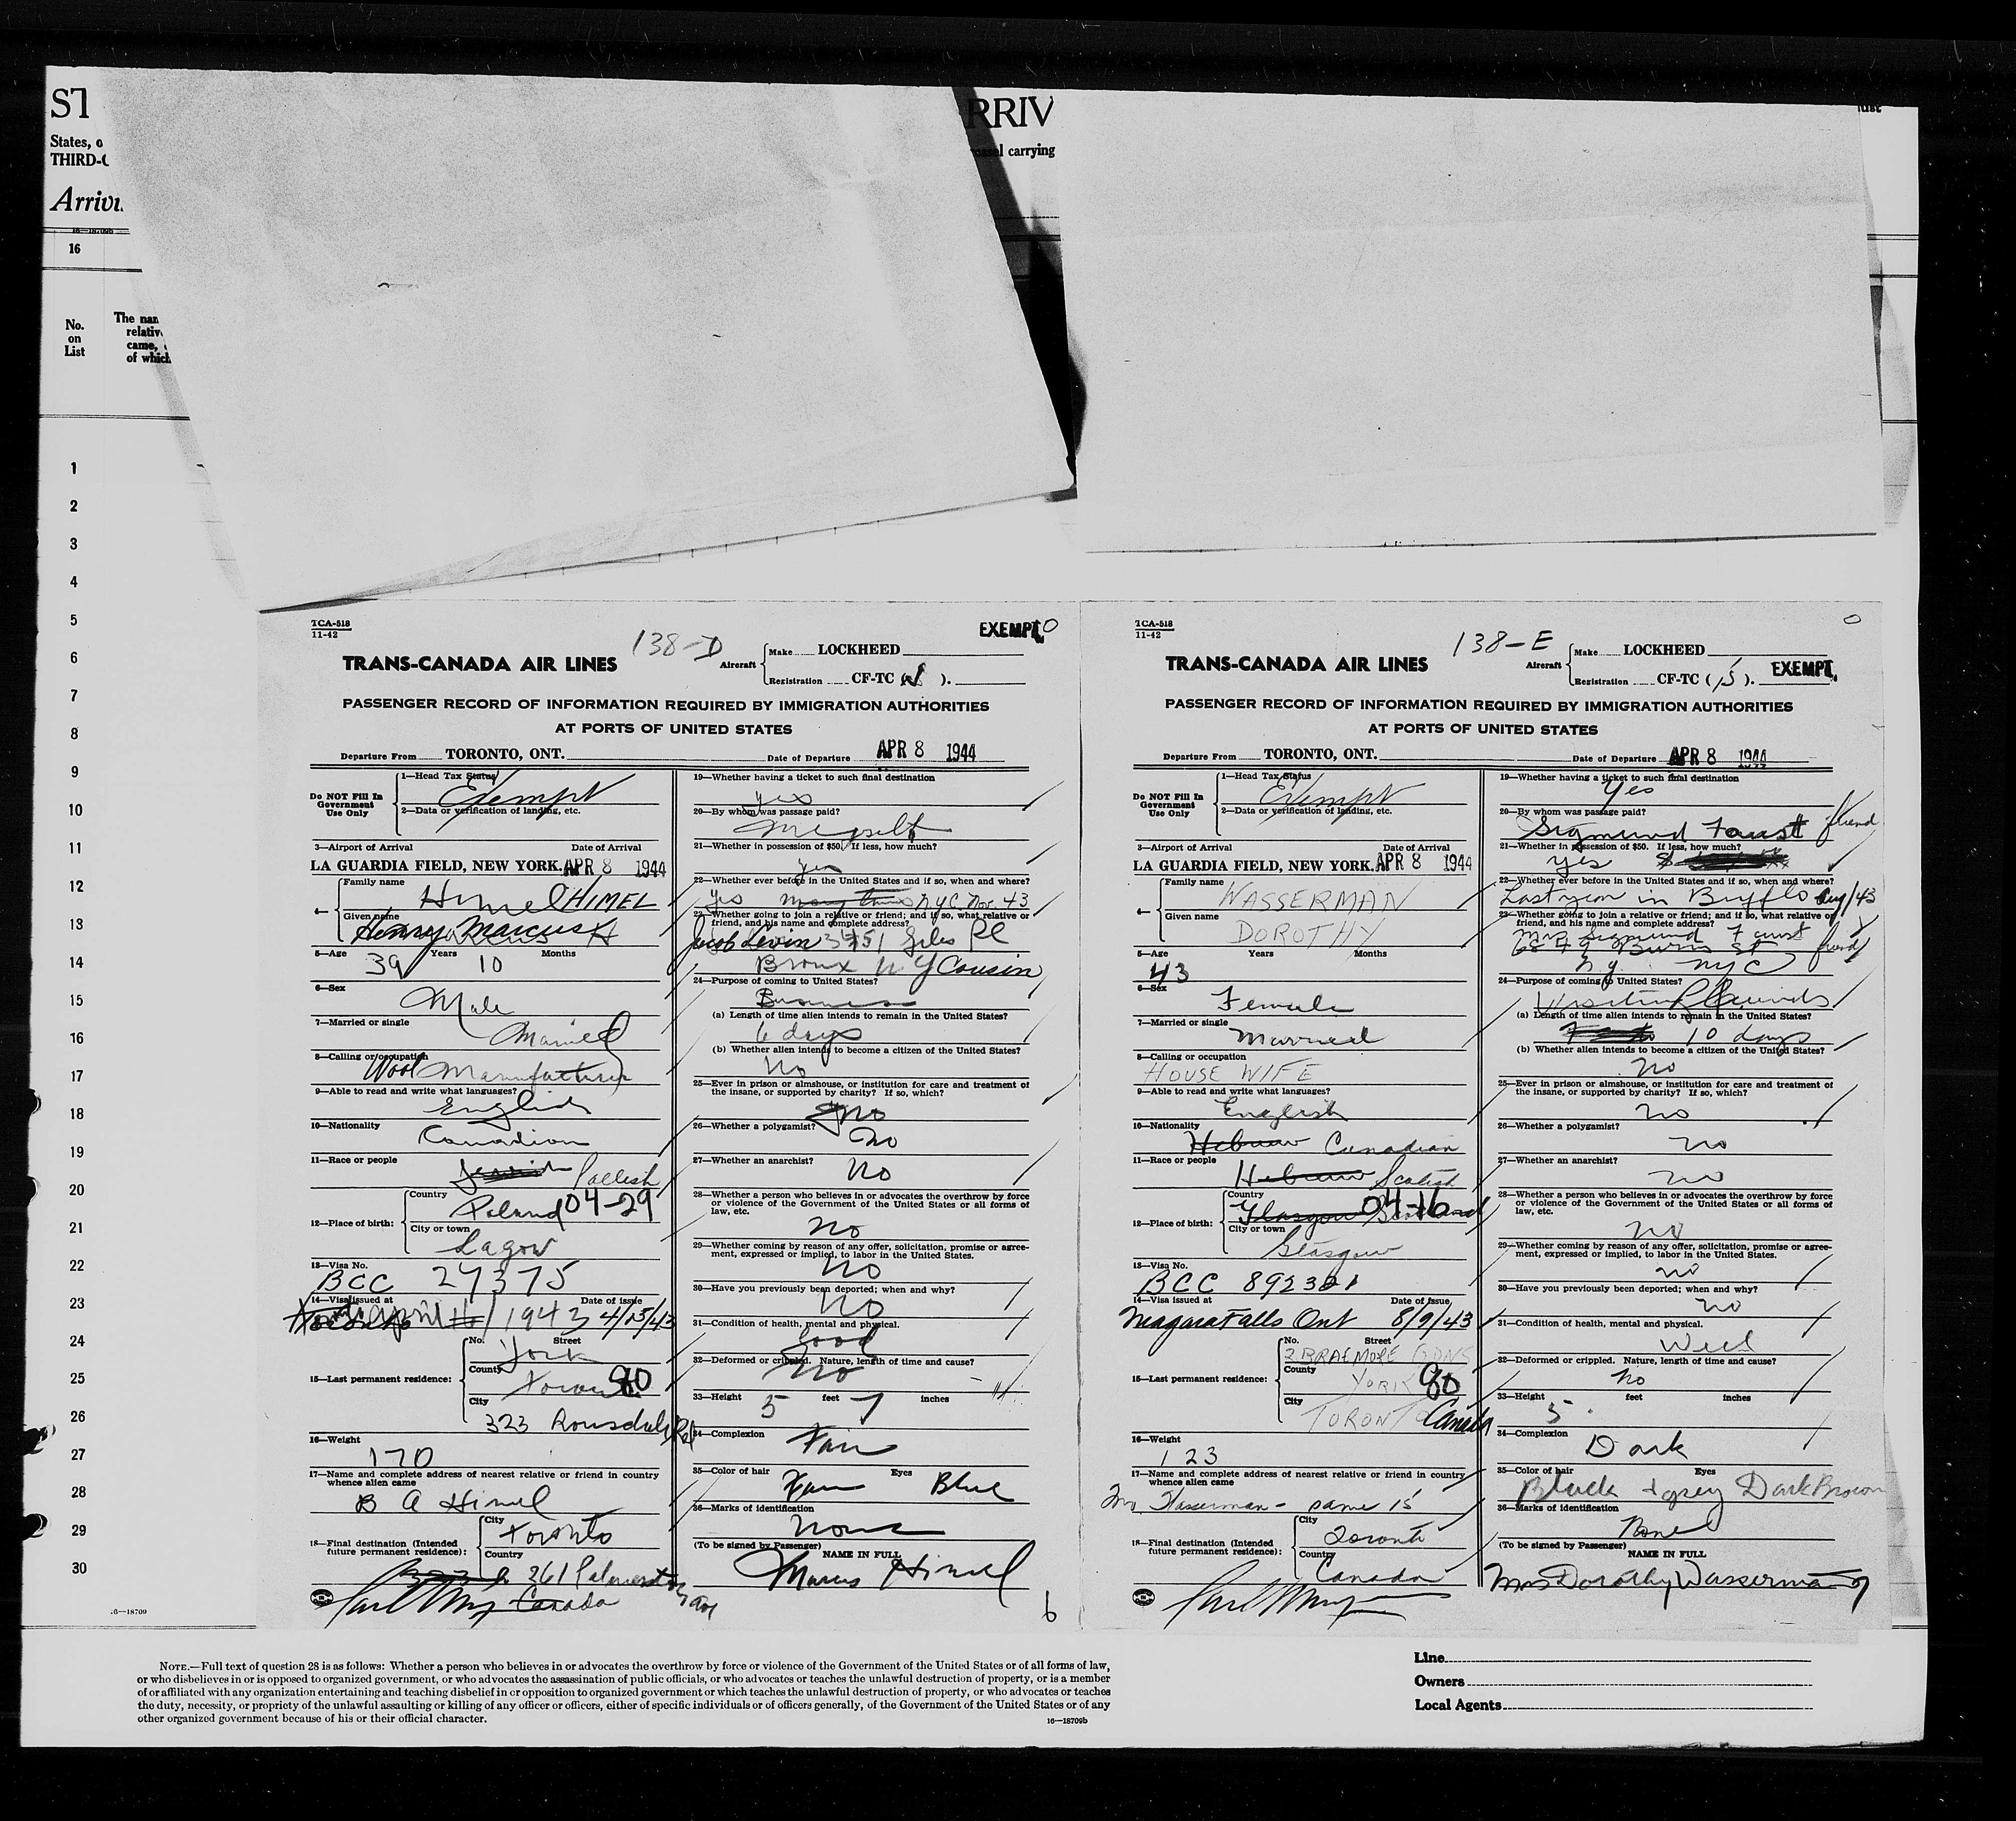 ST
RRIV
States, o
THIRD-C
carrying
16
No.
on
List
The nam
relativ
came,
of which
1
2
3
4
5
6
7
8
9
10
11
12
13
14
15
16
17
18
19
20
21
22
23
24
25
26
27
28
29
30
16—18709
TCA-518
11-42
138-D
EXEMPT
TRANS-CANADA AIR LINES
Aircraft
Make LOCKHEED
Registration CF-TC ( ).
PASSENGER RECORD OF INFORMATION REQUIRED BY IMMIGRATION AUTHORITIES
AT PORTS OF UNITED STATES
Departure From TORONTO, ONT. Date of Departure APR 8 1944
Do NOT Fill In
Government
Use Only
1—Head Tax Status
Exempt
2—Data or verification of landing, etc.
3—Airport of Arrival Date of Arrival
LA GUARDIA FIELD, NEW YORK. APR 8 1944
4—
Family name
Himel HIMEL
Given name
Henry Marcus H
5—Age 39 Years 10 Months
6—Sex
Male
7—Married or single
Married
8—Calling or occupation
Wool Manufacturer
9—Able to read and write what languages?
English
10—Nationality
Canadian
11—Race or people
Jewish Pollish
12—Place of birth:
Country
Poland 04-29
City or town
Lagow
13—Visa No.
BCC 27375
14—Visa issued at Date of issue
Toronto April 1943 4/15/43
15—Last permanent residence:
No. Street
York
County
Toronto 90
City
323 Rd
16—Weight
170
17—Name and complete address of nearest relative or friend in country
whence alien came
B A Himel
18—Final destination (Intended
future permanent residence):
City
Toronto
Country
261 Palmerston Ave
Canada
19—Whether having a ticket to such final destination
yes
20—By whom was passage paid?
Myself
21—Whether in possession of $50. If less, how much?
yes
22—Whether ever before in the United States and if so, when and where?
Yes many times NYC Nov. 43
23—Whether going to join a relative or friend; and if so, what relative or
friend, and his name and complete address?
Jacob Levin 3451 Giles Pl
Bronx NY Cousin
24—Purpose of coming to United States?
Business
(a) Length of time alien intends to remain in the United States?
6 days
(b) Whether alien intends to become a citizen of the United States?
No
25—Ever in prison or almshouse, or institution for care and treatment of
the insane, or supported by charity? If so, which?
no
26—Whether a polygamist?
No
27—Whether an anarchist?
No
28—Whether a person who believes in or advocates the overthrow by force
or violence of the Government of the United States or all forms of
law, etc.
no
29—Whether coming by reason of any offer, solicitation, promise or agree-
ment, expressed or implied, to labor in the United States.
No
30—Have you previously been deported; when and why?
No
31—Condition of health, mental and physical.
Good
32—Deformed or crippled. Nature, length of time and cause?
No
33—Height 5 feet 7 inches
34—Complexion
Fair
35—Color of hair Fair Eyes Blue
36—Marks of identification
None
(To be signed by Passenger)
NAME IN FULL
Marcus Himel
6
TCA-518
11-42
138-E
TRANS-CANADA AIR LINES
Aircraft
Make LOCKHEED
Registration CF-TC ( ). EXEMPT
PASSENGER RECORD OF INFORMATION REQUIRED BY IMMIGRATION AUTHORITIES
AT PORTS OF UNITED STATES
Departure From TORONTO, ONT. Date of Departure APR 8 1944
Do NOT Fill In
Government
Use Only
1—Head Tax Status
Exempt
2—Data or verification of landing, etc.
3—Airport of Arrival Date of Arrival
LA GUARDIA FIELD, NEW YORK. APR 8 1944
4—
Family name
WASSERMAN
Given name
DOROTHY
5—Age 43 Years Months
6—Sex
Female
7—Married or single
Married
8—Calling or occupation
HOUSE WIFE
9—Able to read and write what languages?
English
10—Nationality
Hebrew Canadian
11—Race or people
Hebrew Scotish
12—Place of birth:
Country
Glasgow Scotland 04-16
City or town
Glasgow
13—Visa No.
BCC 892321
14—Visa issued at Date of issue
Niagara Falls Ont 8/9/43
15—Last permanent residence:
No. Street
2 BRAEMORE GDNS
County
YORK 90
City
TORONTO Canada
16—Weight
123
17—Name and complete address of nearest relative or friend in country
whence alien came
Wasserman - same 15
18—Final destination (Intended
future permanent residence):
City
Toronto
Country
Canada
19—Whether having a ticket to such final destination
Yes
20—By whom was passage paid?
Sigmund Faust friend
21—Whether in possession of $50. If less, how much?
yes $
22—Whether ever before in the United States and if so, when and where?
Last year in Buffalo Aug/43
23—Whether going to join a relative or friend; and if so, what relative or
friend, and his name and complete address?
Mrs Sigmund Faust
Burns St friend
N.Y. NYC
24—Purpose of coming to United States?
Visiting friends
(a) Length of time alien intends to remain in the United States?
10 days
(b) Whether alien intends to become a citizen of the United States?
no
25—Ever in prison or almshouse, or institution for care and treatment of
the insane, or supported by charity? If so, which?
no
26—Whether a polygamist?
no
27—Whether an anarchist?
no
28—Whether a person who believes in or advocates the overthrow by force
or violence of the Government of the United States or all forms of
law, etc.
no
29—Whether coming by reason of any offer, solicitation, promise or agree-
ment, expressed or implied, to labor in the United States.
no
30—Have you previously been deported; when and why?
no
31—Condition of health, mental and physical.
Well
32—Deformed or crippled. Nature, length of time and cause?
no
33—Height 5 feet inches
34—Complexion
Dark
35—Color of hair Eyes
Black & grey Dark Brown
36—Marks of identification
None
(To be signed by Passenger)
NAME IN FULL
Mrs Dorothy Wasserman
NOTE.—Full text of question 28 is as follows: Whether a person who believes in or advocates the overthrow by force or violence of the Government of the United States or of all forms of law,
or who disbelieves in or is opposed to organized government, or who advocates the assassination of public officials, or who advocates or teaches the unlawful destruction of property, or is a member
of or affiliated with any organization entertaining and teaching disbelief in or opposition to organized government or which teaches the unlawful destruction of property, or who advocates or teaches
the duty, necessity, or propriety of the unlawful assaulting or killing of any officer or officers, either of specific individuals or of officers generally, of the Government of the United States or of any
other organized government because of his or their official character.
16—18709b
Line
Owners
Local Agents